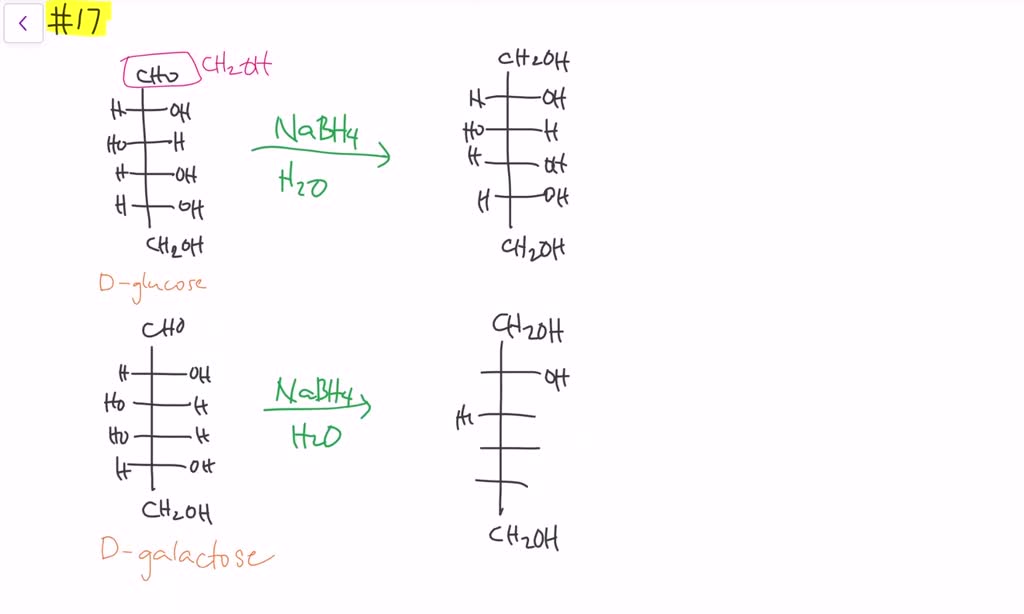 #17
CHO CH2OH
H OH
HO H
H OH
H OH
CH2OH
D-glucose
NaBH4
H2O
CH2OH
H OH
HO H
H OH
H OH
CH2OH
CHO
H OH
HO H
HO H
H OH
CH2OH
D-galactose
NaBH4
H2O
CH2OH
OH
CH2OH